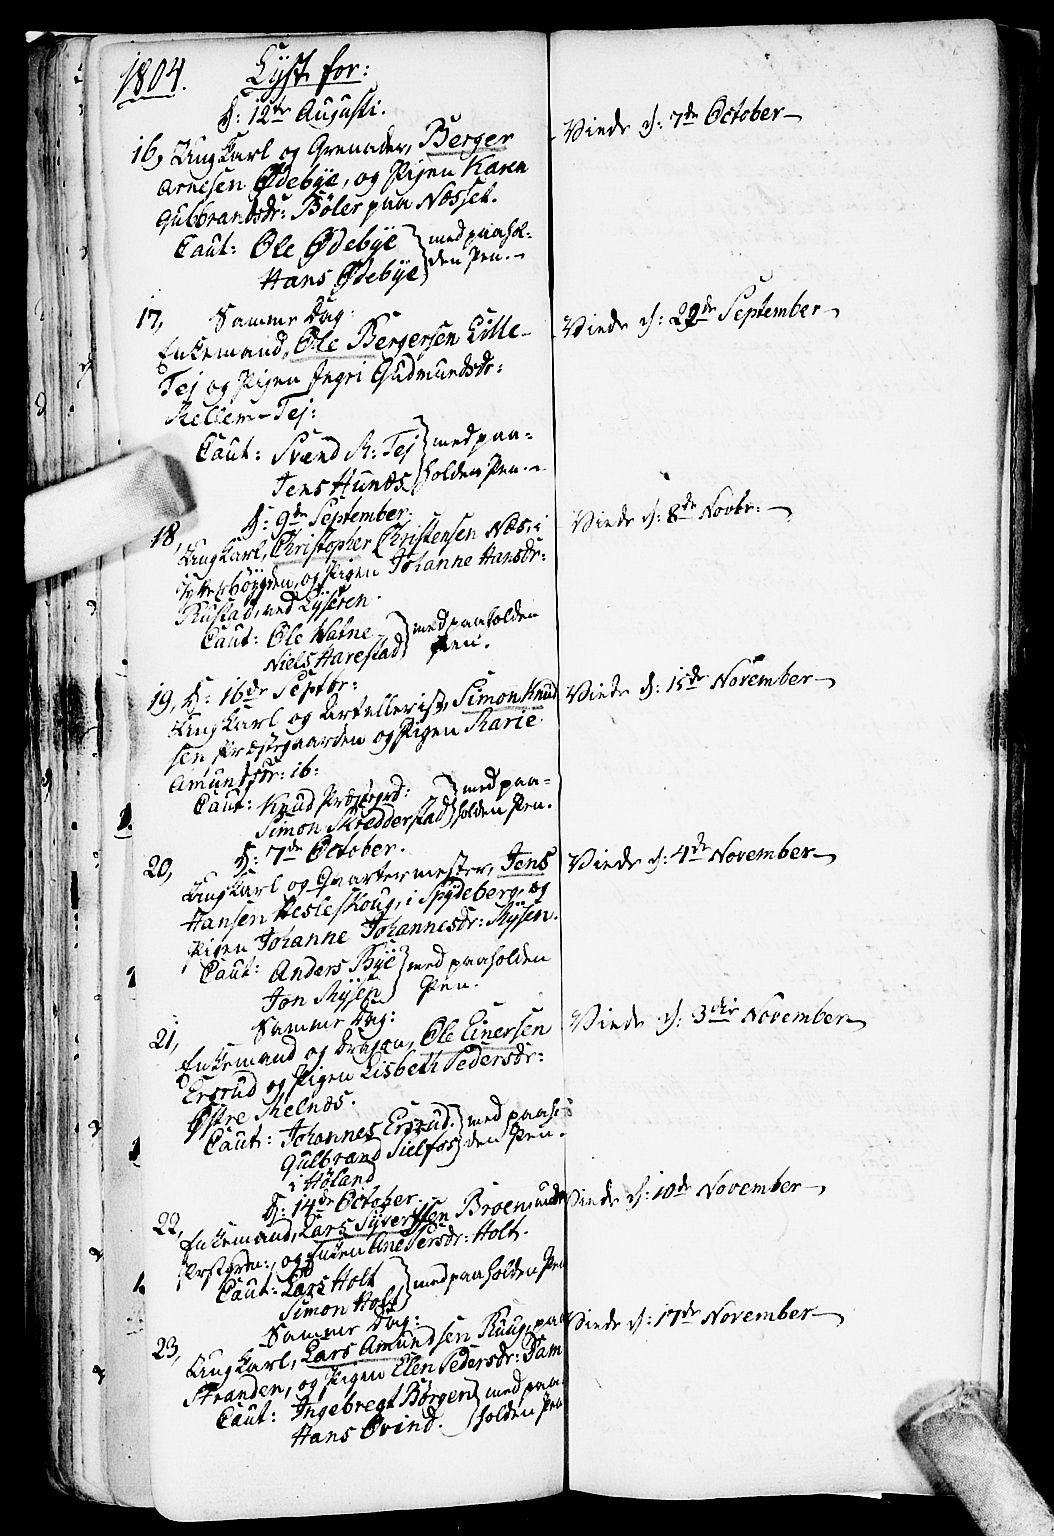 1804. Lyst for:
d: 12te Augusti.
16, Ungkarl og Grenader, Berger
Arnesen Ødebye, og Pigen Karen
Gulbrandsdr: Böler paa Næsset.
Caut: Ole Ødebye } med paahol-
Hans Ødebye } den Pen.-
Viede d: 7de October-
17, Samme Dag:
Enkemand, Ole Bergersen Lille-
Tej og Pigen Ingri Gudmundsdr:
Mellem-Tej:
Caut: Svend M: Tej } med paa-
Jens Hunæs } holden Pen.-
Viede d: 22de September-
d: 9de September.
18, Ungkarl, Christopher Christensen Næs, i
Ytterböygden, og Pigen Johanne Hansdr:
Rustad, ved Lyseren.
Caut: Ole Natne } med paaholden
Niels Harestad } Pen.
Viede d: 8de Novbr:-
19, d: 16de Septbr:
Ungkarl og Artillerist, Simon Knud
sen Præstgaarden og Pigen Marie
Amundsdr: ib:
Caut: Knud Præstegrd: } med paa-
Simon Skredderstad } holden Pen.
Viede d: 15de November-
d: 7de October.
20, Ungkarl og Quartermester, Jens
Hansen Hesleskoug, i Spydeberg, og
Pigen Johanne Johannesdr: Mysen.
Caut: Anders Bye } med paaholden
Jon Mysen } Pen.
Viede d: 4de November-
Samme Dag:
21, Enkemand og Dragon, Ole Einersen
Ersrud og Pigen Lisbeth Pedersdr:
Østre Melnæs.
Caut: Johannes Ersrud } med paahol
Gulbrand Sielfos } den Pen.
i Höland
Viede d: 3die November-
d: 14de October.
22, Enkemand, Lars Syversen Broen, under
Præstgrden:, og Enken Ane Persdr: Holt.
Caut: Lars Holt } med paaholden Pen
Simon Holt
Viede d: 10de November-
Samme Dag:
23, Ungkarl, Lars Amundsen Ruug, paa
Stranden, og Pigen Elen Pedersdr: Dam
Caut: Ingebregt Börgen } med paa-
Hans Øvind. } holden Pen
Viede d: 17de November-